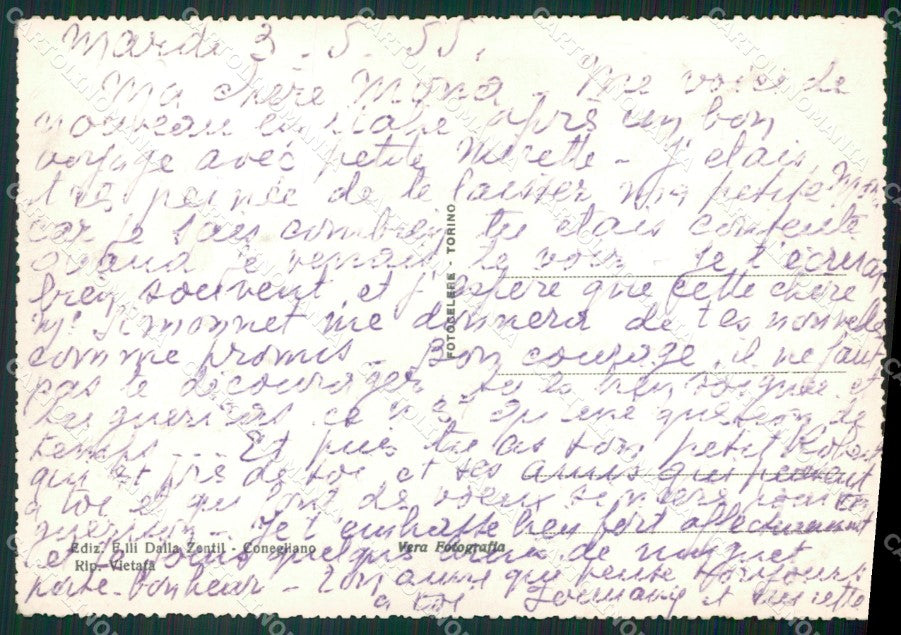 Mardi 3.5.55.
Ma chère Mona - Me voici de
nouveau en Italie après un bon
voyage avec petite Mirette - J'étais
très peinée de te laisser ma petite Mona
car je sais combien tu étais contente
quand je venais te voir - Je t'écrirai
bien souvent et j'espère que cette chère
Mr Simonnet me donnera de tes nouvelles
comme promis - Bon courage, il ne faut
pas te décourager, tu es bien soignée et
tu guériras ce n'est qu'une question de
temps .... Et puis tu as ton petit Robert
qui est près de toi et tes amis qui pensent
à toi et qui font des voeux sincères pour ta
guérison - Je t'embrasse bien fort affectueusement
et de muguet
porte-bonheur - Ton amie qui pense toujours
à toi et Mirette
FOTOCELERE - TORINO
Ediz. F.lli Dalla Zentil - Conegliano
Rip. Vietata
Vera Fotografia
CARTOLINOMANIA